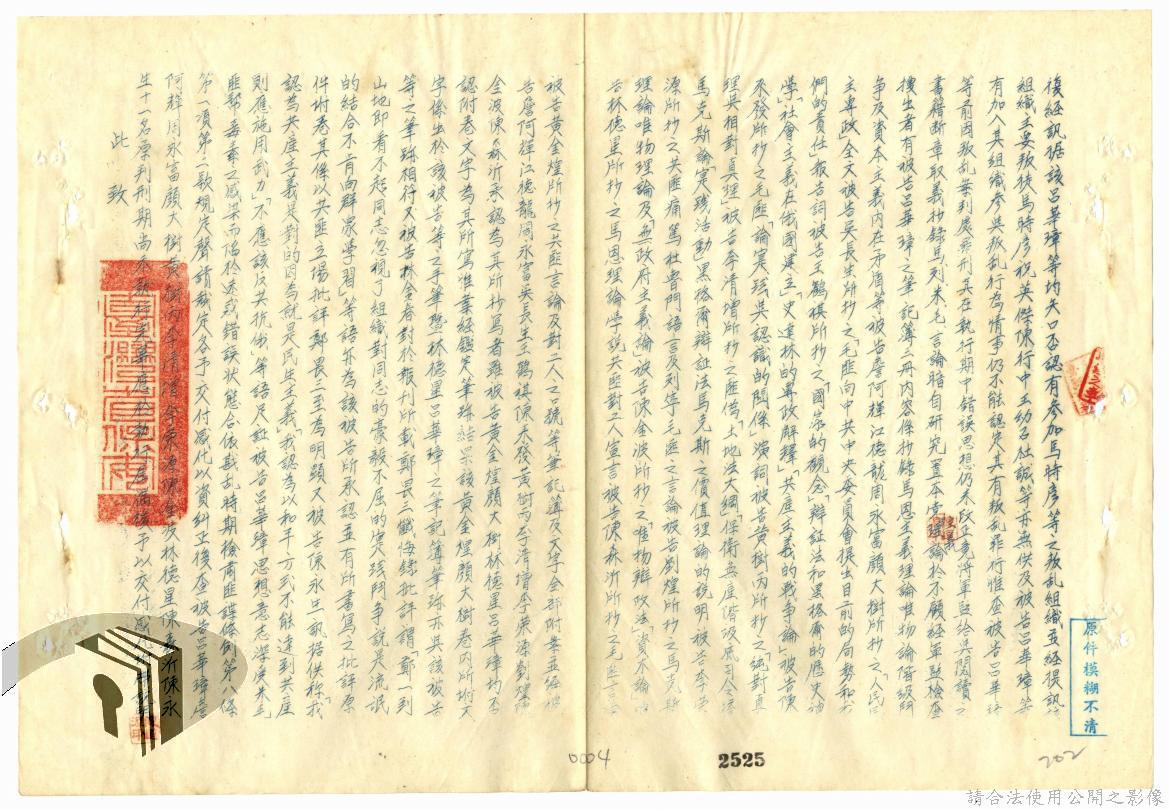 後經訊據該呂華璋等均矢口否認有參加馬時彥等之叛乱組織並經提訊
組織主要叛徒馬時彥祝英傑陳行中王幼石杜誠等亦無供及被告呂華璋等
有加入其組織參與叛乱行為情事仍不能認定其有叛乱罪行惟查被告呂華璋
等前因叛乱案判處徒刑其在執行期中錯誤思想仍未改正竟將軍監給與閱讀之
書籍斷章取義抄錄馬列朱毛言論暗自研究置本
論於不顧經軍監檢查
搜出者有被告呂華璋之筆記簿二冊內容係抄錄馬恩主義理論唯物論階級鬥
爭及資本主義內在矛盾等被告詹何輝江德龍周永富顏大樹所抄之「人民民
主專政」全文被告吳長生所抄之「毛匪向中共中央委員會提出目前的局勢和我
們的責任」報告詞被告王鶴棋所抄之「國家的觀念」「辯証法和黑格爾的歷史油
學」「社會主義在俄國建立」「史達林的對政解釋」「共產主義的戰爭論」被告陳
禾發所抄之毛匪「論實践與認識的関係」演詞被告黃樹丙所抄之「絕對真
理與相對真理」被告李清增所抄之匪偽「土地法大綱」「保衛無產階波底司令塔」
馬克斯論實踐活動」黑格爾辯証法馬克斯之價值理論的說明」被告李荣
源所抄之共匪痛罵杜魯門語言及列寧毛匪之言論被告劉煌所抄之馬克斯
理論唯物理論及無政府主義論」被告陳金波所抄之「唯物辯政法」「資本論」被
告林德里所抄之馬恩理論學說共匪對工人宣言被告陳森沂所抄之毛匪言論
被告黃金煌所抄之共匪言論及對工人之口號等筆記簿及文字全部附卷並經被
告詹何輝江德龍周永富吳長生王鶴祺陳禾發黃樹丙李清增李荣源劉煌陳
金波陳森沂承認為其所抄寫者雖被告黃金煌顏大樹林德里呂華璋均否
認附卷文字為其所寫惟業經鑑定筆跡結果該黃金煌顏大樹卷內所附文
字係出於該被告等之手筆暨林德里呂華璋之筆記簿筆跡亦與該被告
等之筆跡相符又被告林金春對於報刊所載鄭畏三懺悔錄批評謂「鄭一到
山地即看不起同志忽視了組織對同志的豪毅不屈的實踐鬥爭說是流氓
的結合不肯向群眾學習」等語亦為該被告所承認並有所書寫之批評原
件附卷其係以共匪立場批評鄭畏三至為明顯又被告陳永生訊據供稱「我
認為共產主義是對的因為就是民生主義」「我認為以和平方式不能達到共產
則應施用武力」「不應該反共抗俄」等語足証被告呂華璋思想意志深受朱毛
匪幫毒素之感染而陷於迷或錯誤狀態合依戡乱時期檢肅匪諜條例第八條
第一項第二款規定聲請裁定各予交付感化以資糾正後查被告呂華璋詹
何輝周永富顏大樹黃樹丙李清增李荣源陳金波林德里陳森沂陳永
生十一名原判刑期尚未執行完畢應於執行屆滿後予以交付感化
此致
原件模糊不清
0004
2525
202
請合法使用公開之影像